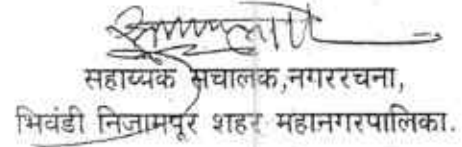 सहाय्यक संचालक,नगररचना,
भिवंडी निजामपूर शहर महानगरपालिका.